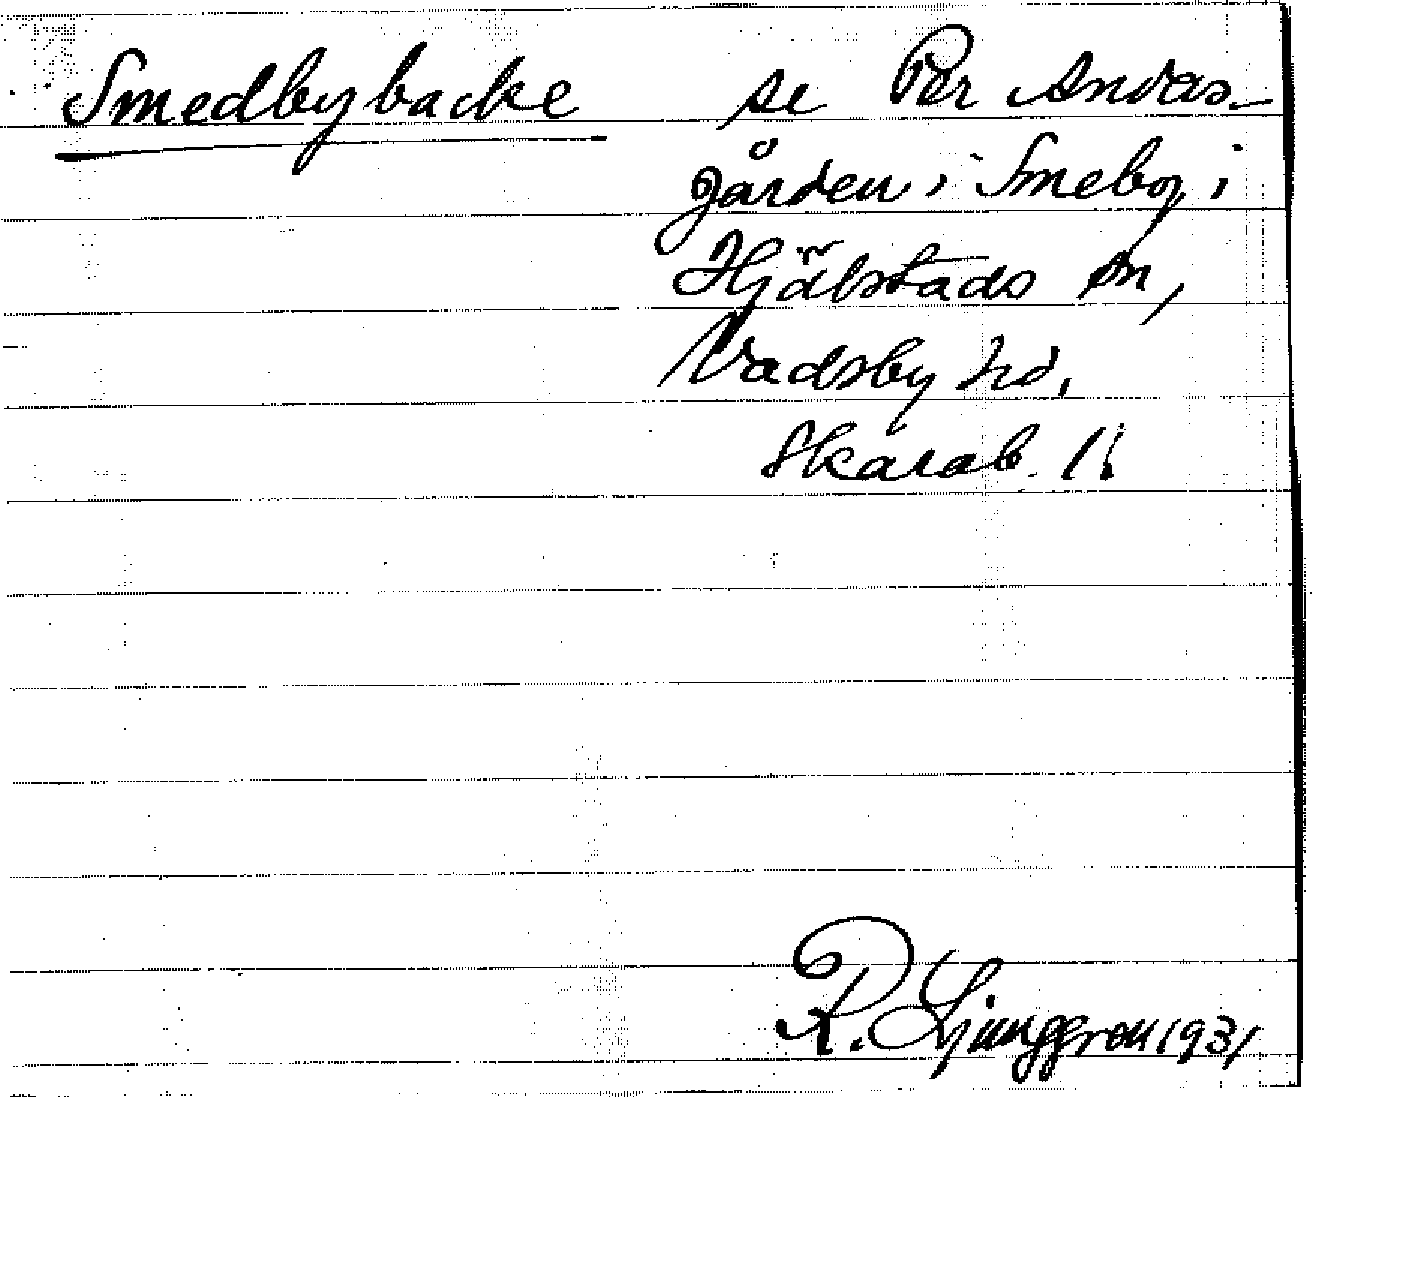 Smedbybacke se Per Andas-
gården i Smeby i
Hjälstads sn,
Vadsby hd,
Skarab. l.
R. Ljunggren 1931